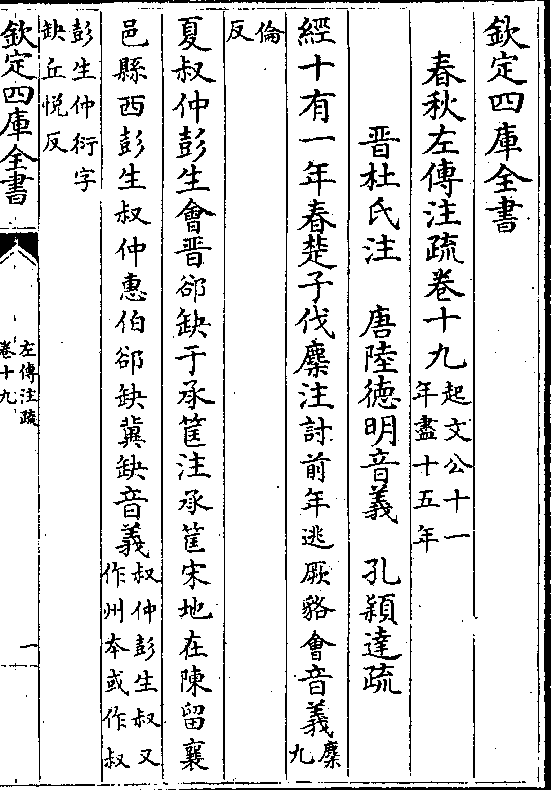 欽定四庫全書
春秋左傳注疏卷十九起文公十一年盡十五年
晉杜氏注　唐陸德明音義　孔穎達疏
經十有一年春楚子伐麇注討前年逃厥貉會音義麇九
倫反
夏叔仲彭生會晉郤缺于承筐注承筐宋地在陳留襄
邑縣西彭生叔仲惠伯郤缺冀缺音義叔仲彭生叔又作州本或作叔
彭生仲衍字缺丘悅反
欽定四庫全書
左傳注疏
卷十九
一